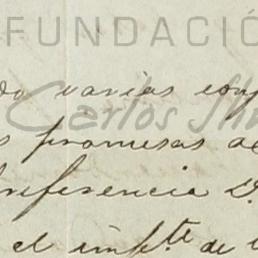 FUNDACIÓ
do varias conf
Carlos
s promesas de
nferencia D.
el impte. de